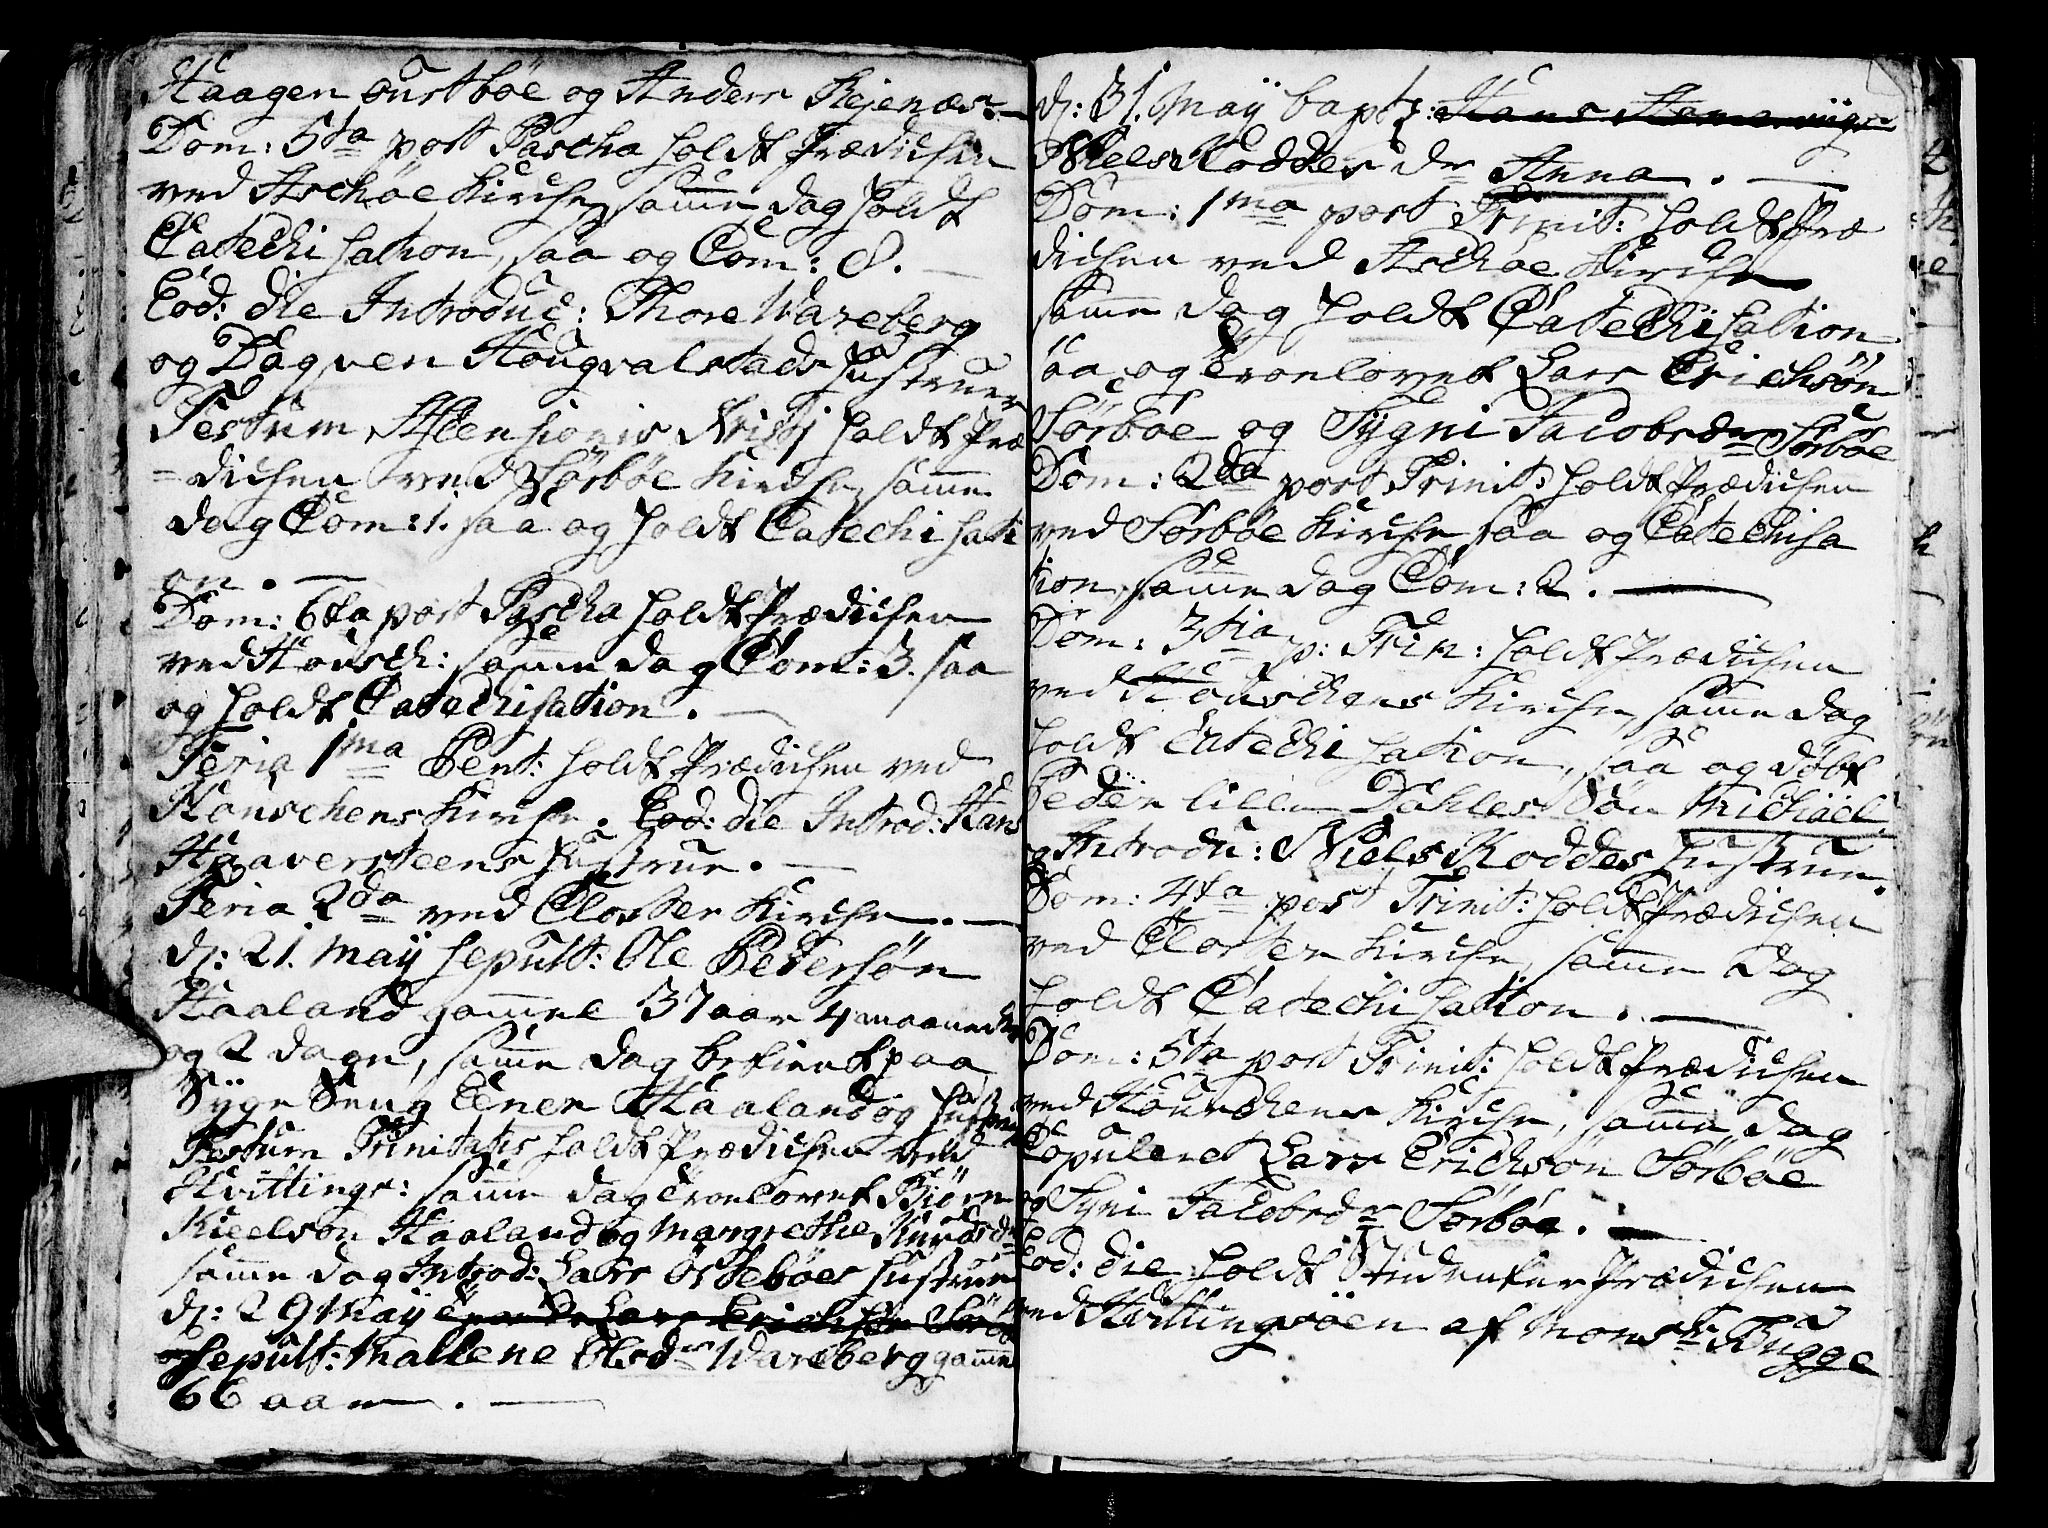 Haagen Oustbøe og Anders Rejenæs. —
Dom: 5ta post Pascha holdt Prædichen
ved Aschøe Kirche, samme dag holdt
Catechisation, saa og Com: 8. —
Eod: die Introduc: Thore Wareberg
og Dagven Hougvalstads Hustruer
Festum Ascensionis Kristi holdt Præ
=dichen ved Sørbøe Kirche, samme
dag Com: 1. saa og holdt Catechisati
on. —
Dom: 6ta post Pascha holdt Prædichen
ved Housch: samme dag Com: 3. saa
og holdt Catechisation. —
Feria 1ma Pent: holdt Prædichen ved
Houschens Kirche. Eod: die Introd: Hans
Haaversteens Hustrue. —
Feria 2da ved Closter Kirche. —
d: 21. Maÿ sepult: Ole Pedersøn
Haaland gammel 37 aar 4 maaneder
og 2 dage, samme dag betient paa
Syge Seng Eener Haaland og Hustrue
Festum Trinitatis holdt Prædichen ved
Hvittings: samme dag Troelovet Biørn
Kieelsøn Haaland og Margrethe Knudsdr
samme dag Introd: Lars Østebøes Hustrue
d: 29 Maÿ Lars Erichsøn Sørbøe
og Sepult: Mallene Olsdr Wareberg gamme
66 aar. —
d: 31. Maÿ bapt: Hans
Niels Roddes dr Anna. —
Dom: 1ma post Trinit: holdt Præ
dichen ved Aschøe Kirche
samme dag holdt Catechisation
saa og Troelovet Lars Erichsøn
Sørbøe og Sygni Jacobsdr Sørbøe
Dom: 2da post Trinit: holdt Prædichen
ved Sørbøe Kirche saa og Catechisa
tion, samme dag Com: 2. —
Dom: 3tia p: Trin: holdt Prædichen
ved Houschens Kirche, samme dag
holdt Catechisation, saa og døbt
Peder lille Dahles Søn Michael.
og Introdu: Niels Roddes Hustrue.
Dom: 4ta post Trinit: holdt Prædichen
ved Closter Kirche, samme Dag
holdt Catechisation. —
Dom: 5ta post Trinit: holdt Prædichen
ved Houschens Kirche, samme dag
Copuleret Lars Erichsøn Sørbøe
og Syni Jacobsdr Sørbøe. —
Eod: die holdt Studenter Prædichen
ved Hvittingsöen af Monsr Bugge